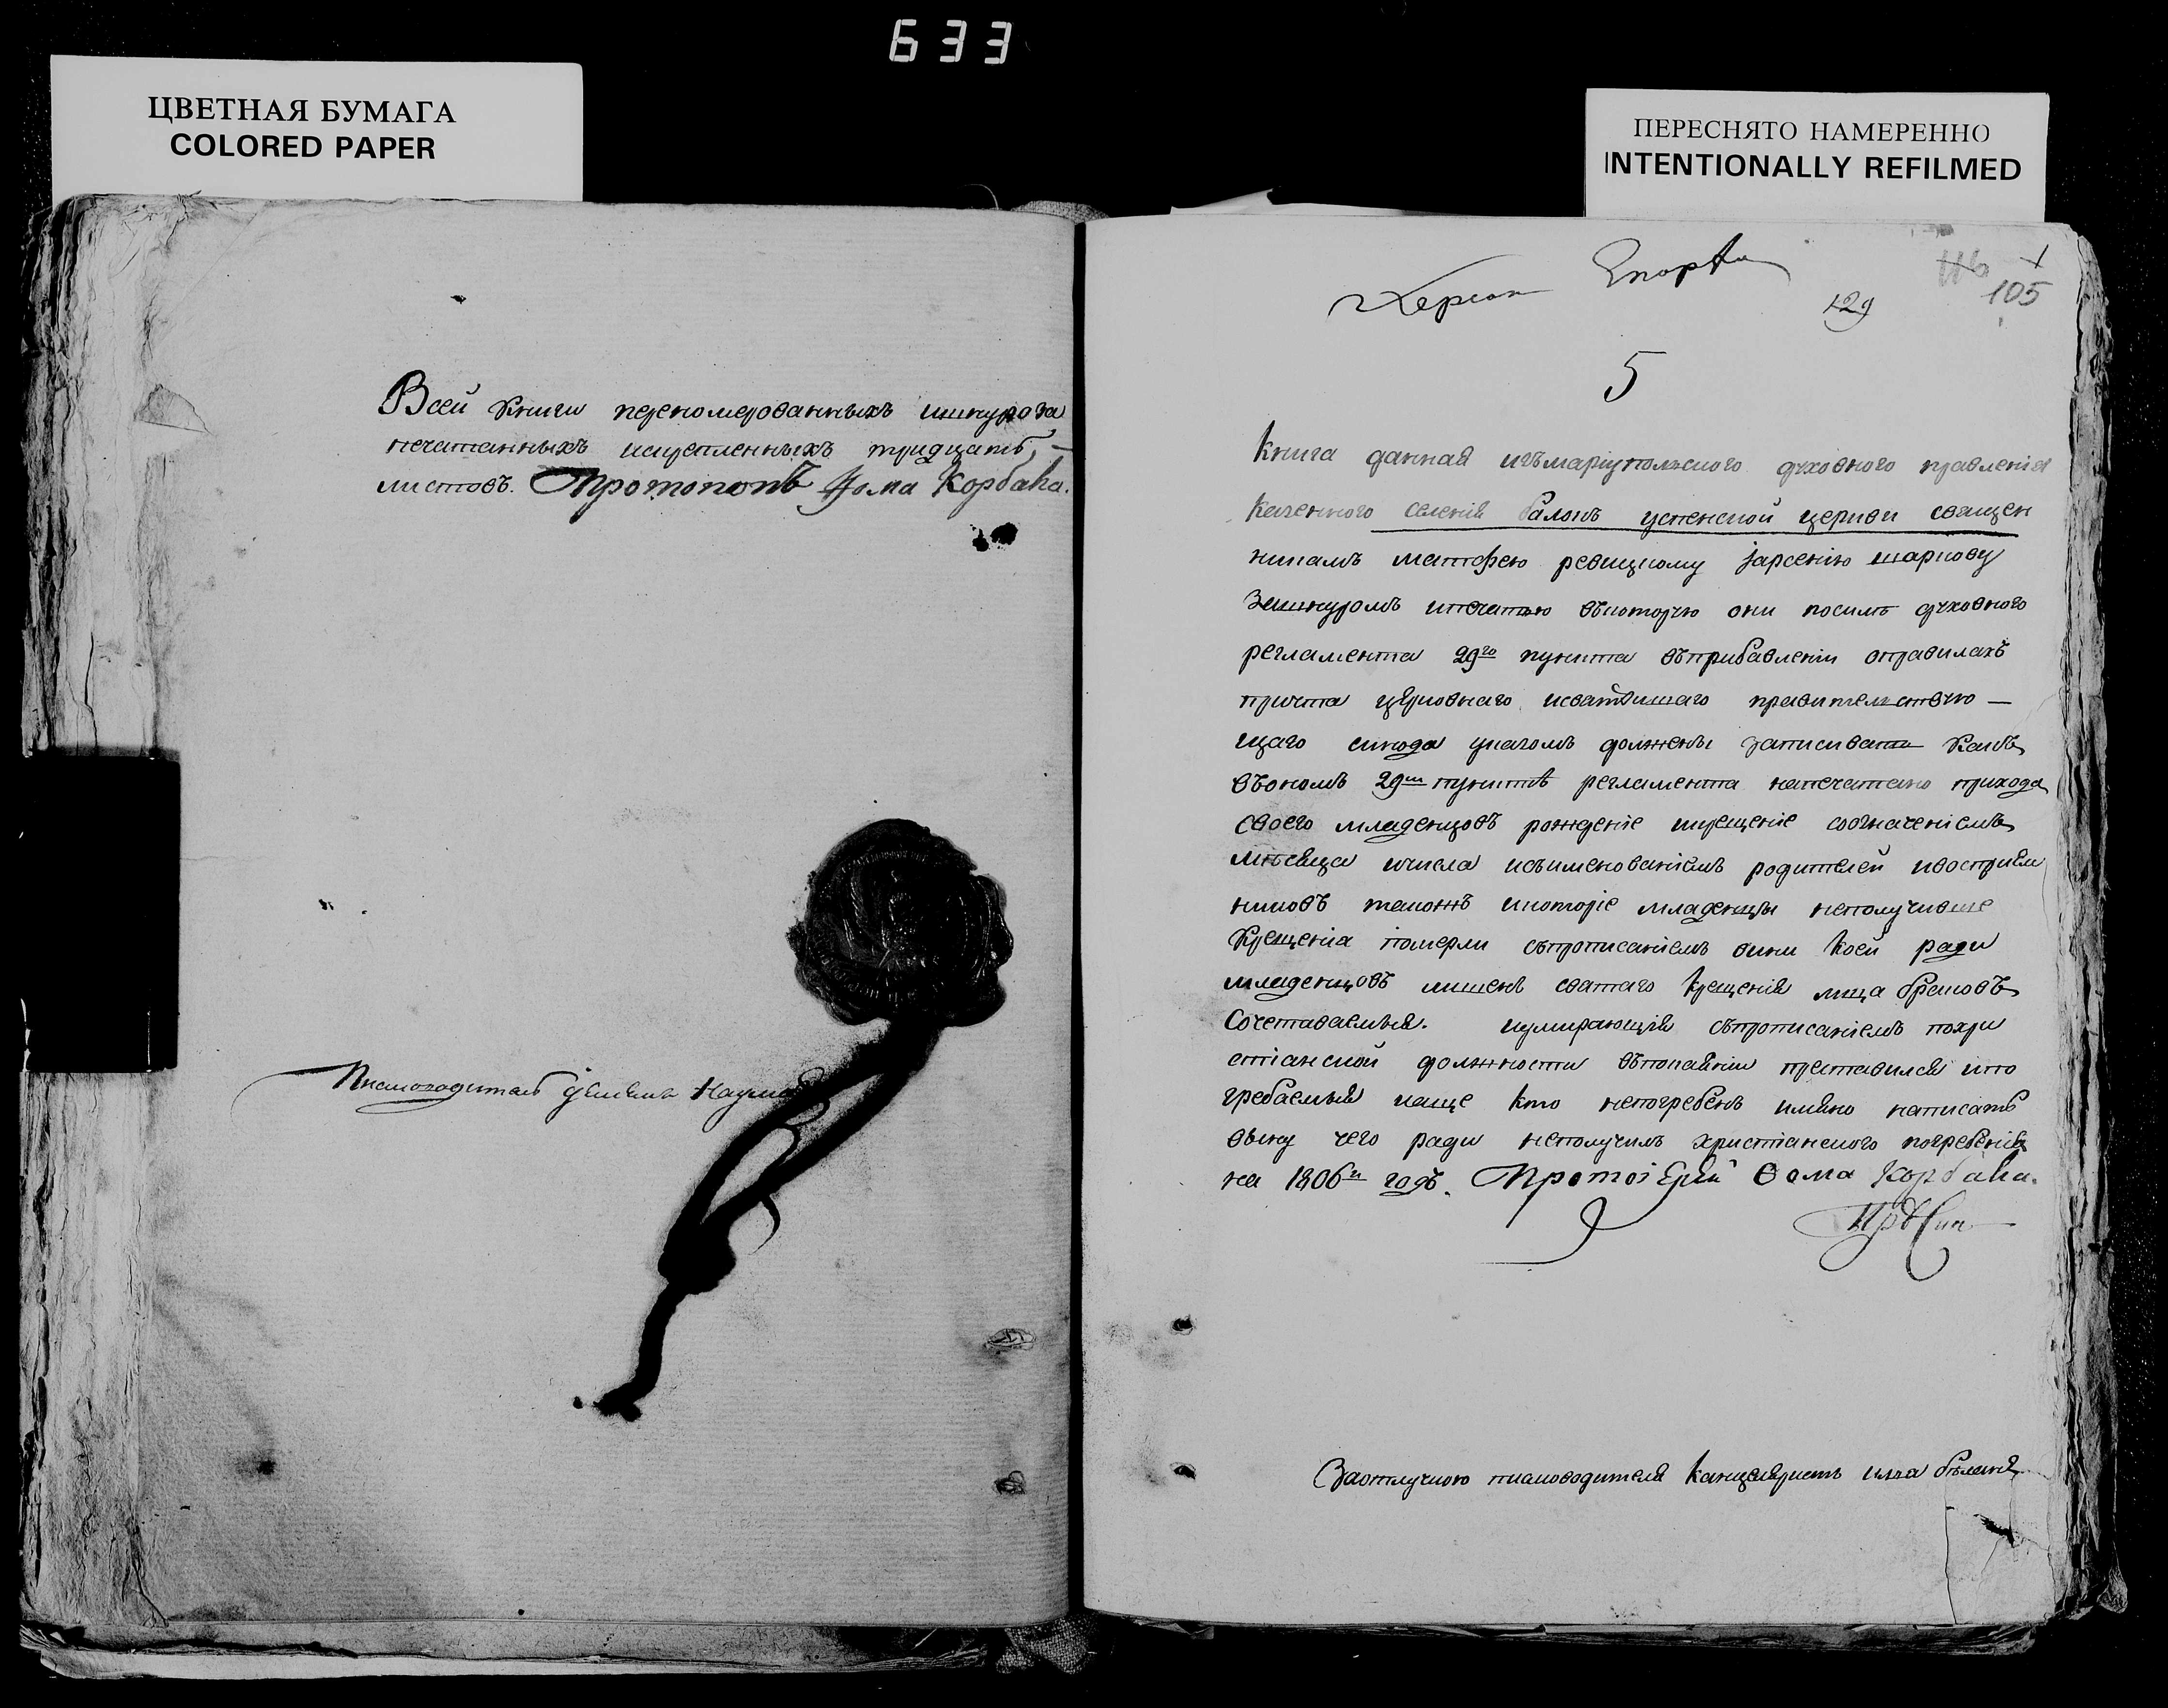 633
ЦВЕТНАЯ БУМАГА
COLORED PAPER
ПЕРЕСНЯТО НАМЕРЕННО
INTENTIONALLY REFILMED
Всей книги переномерованныхъ ишнуроза
печатанныхъ искрепленныхъ тридцать
листовъ. Протопопъ Фома Корбаки.
Писмоводитель
105
129
5
Книга данная изъмариупольского духовного правления
казенного селения балокъ успенской церкви священ
никамъ матфею ревицкому јарсению шаркову
зашнуромъ ипечатью въкоторую они посилѣ духовного
регламента 29го пункта въприбавлении оправилахъ
причта церковнаго исвятѣйшаго правительствую —
щаго синода указомъ должены записивать какъ
въономъ 29м пунктѣ регламента напечатано прихода
своего младенцовъ рождение икрещение созначениемъ
мѣсяца ичисла исъименованиемъ родителей ивосприем
никовъ такожъ икоторие младенцы неполучивше
крещения померли съпрописаниемъ вини коей ради
младенцовъ лишенъ святаго крещения лица браковъ
сочетаваемыя. иумирающия съпрописаниемъ похри
стианской должности въпокаянии преставился ипо
гребаемыя иаще кто непогребенъ имянно написать
вину чего ради неполучилъ христианского погребения
на 1806й годъ. Протоіерей Ѳома Корбаки.
Заотлучкою писмоводителя Канцеляристъ илья